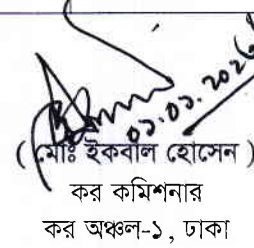 ০১.০১.২০২৬
( মোঃ ইকবাল হোসেন )
কর কমিশনার
কর অঞ্চল-১, ঢাকা